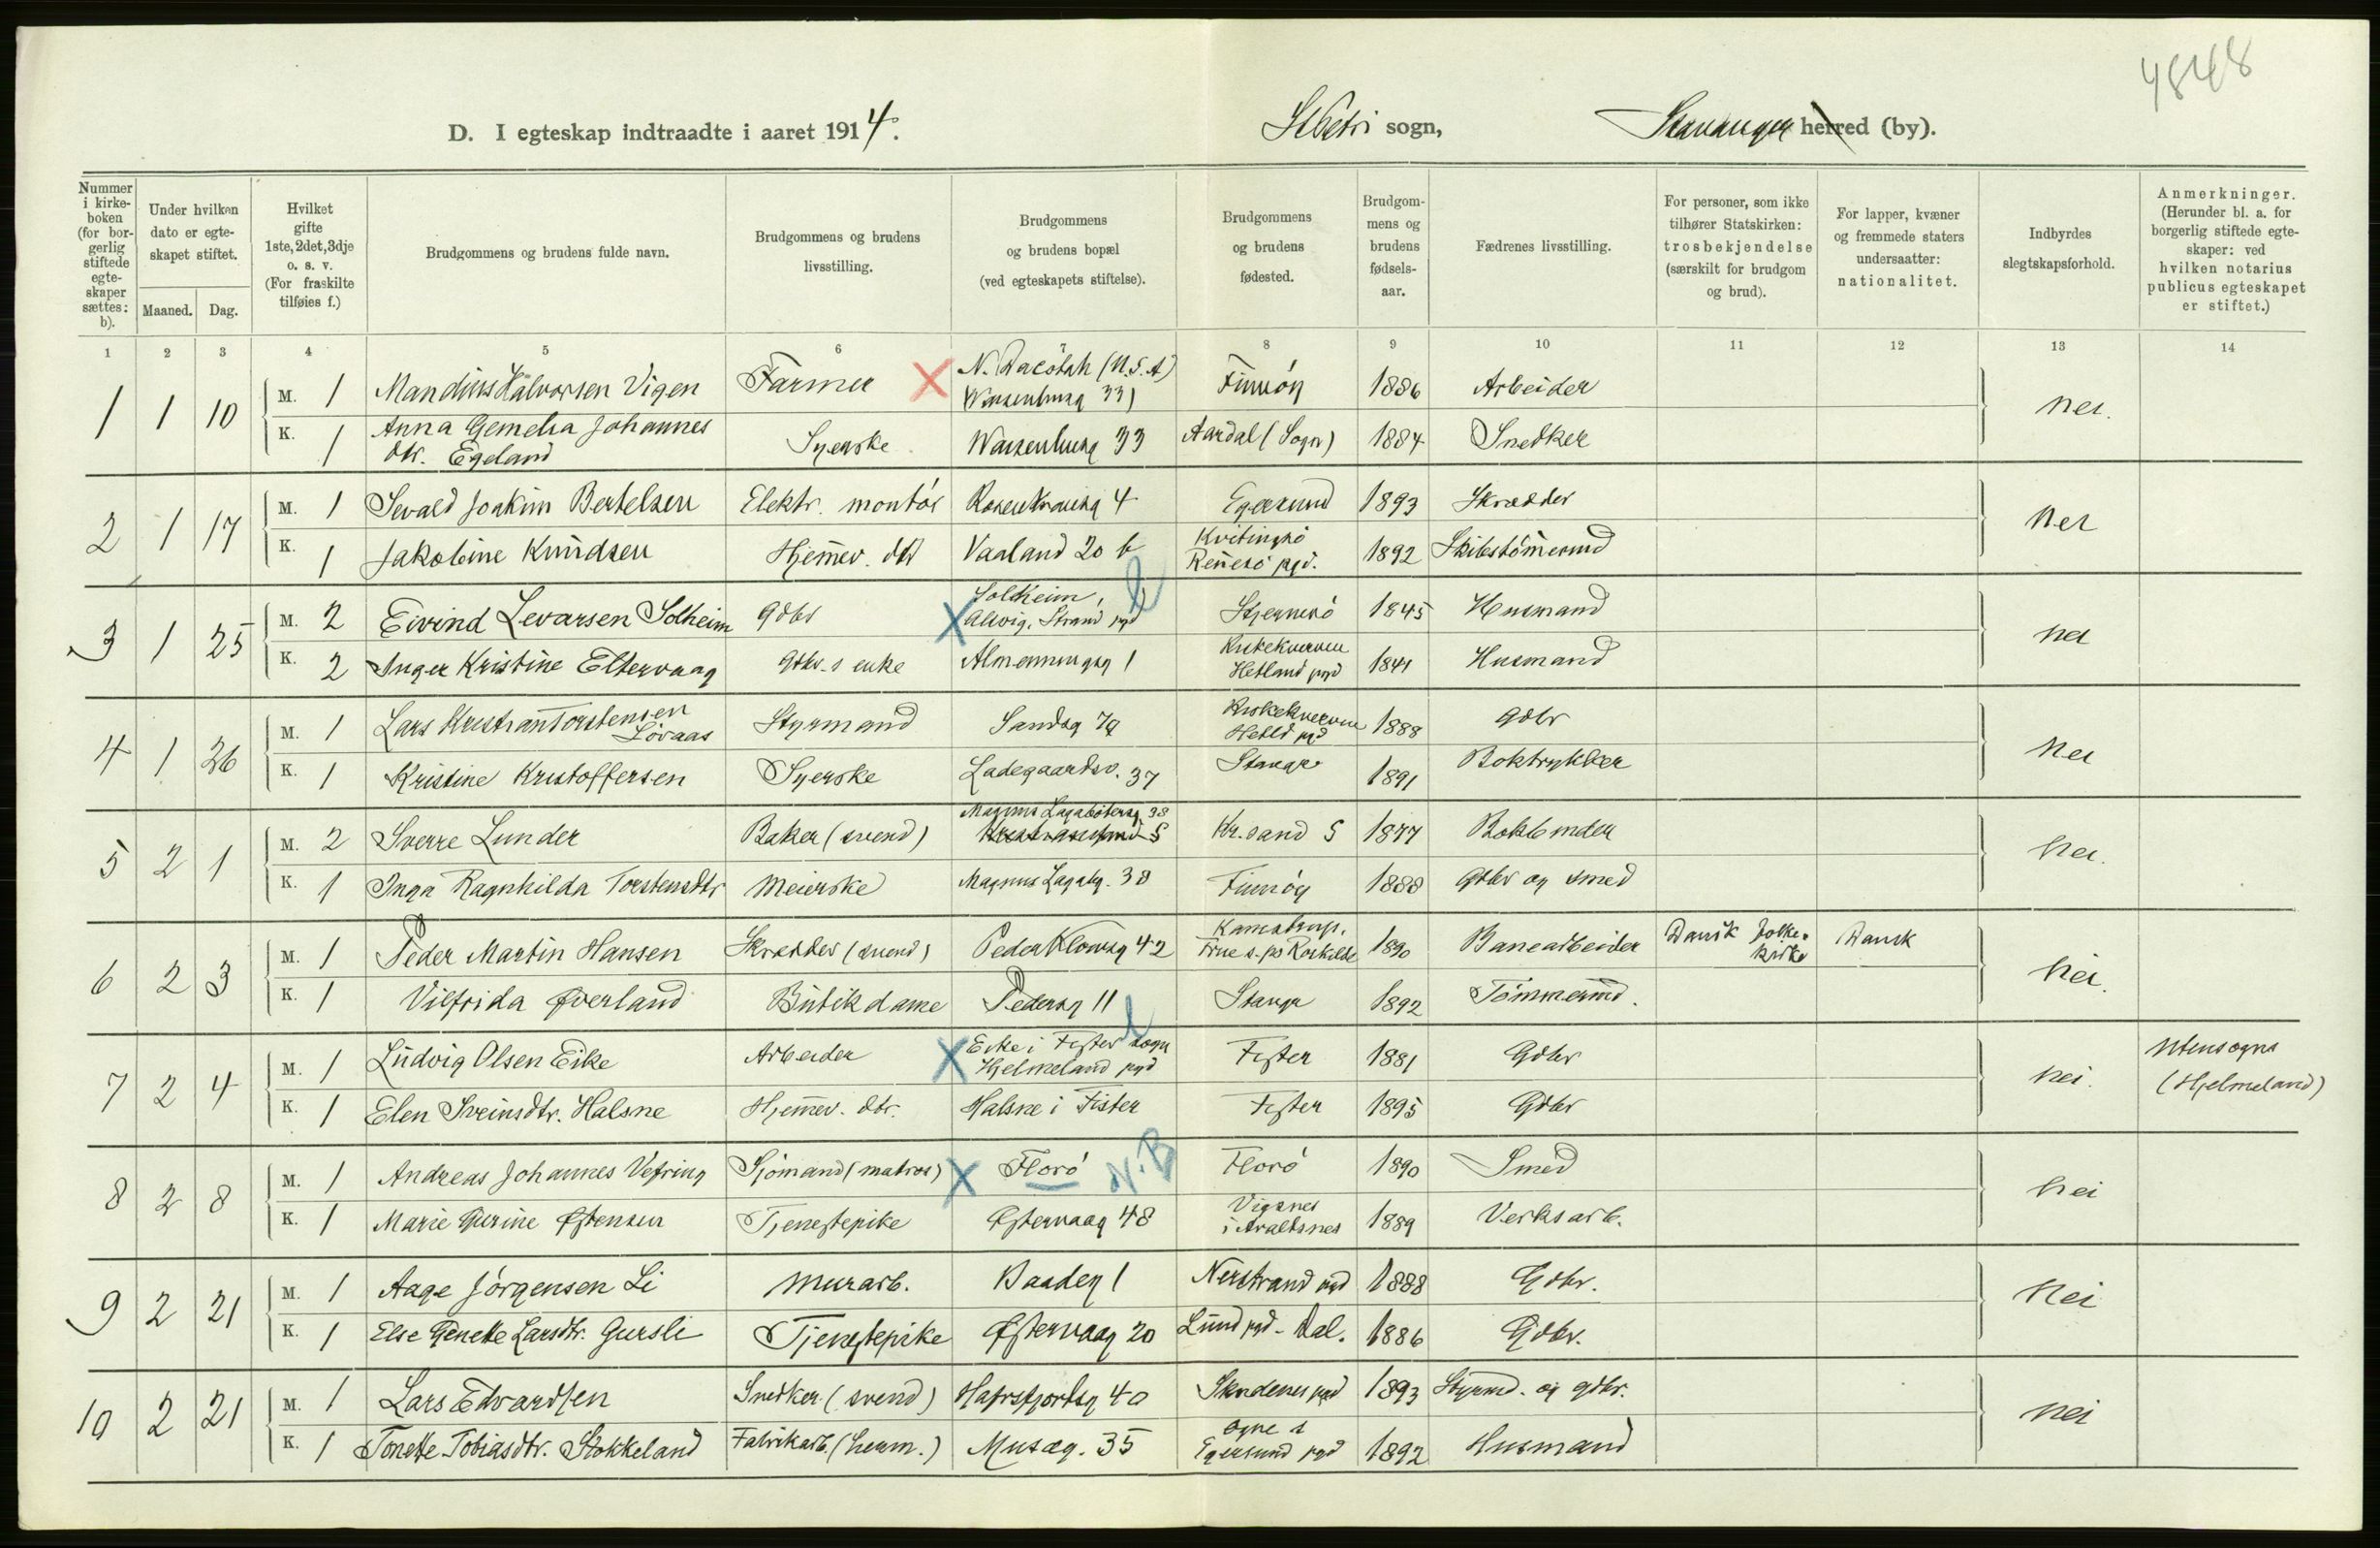 4848
D. I egteskap indtraadte i aaret 1914. St Petri sogn, Stavanger herred (by).
Nummer i kirkeboken (for borgerlig stiftede egteskaper sættes: b).
Under hvilken dato er egteskapet stiftet.
Maaned. Dag.
Hvilket gifte 1ste, 2det, 3dje o. s. v. (For fraskilte tilføies f.)
Brudgommens og brudens fulde navn.
Brudgommens og brudens livsstilling.
Brudgommens og brudens bopæl (ved egteskapets stiftelse).
Brudgommens og brudens fødested.
Brudgommens og brudens fødselsaar.
Fædrenes livsstilling.
For personer, som ikke tilhører Statskirken: trosbekjendelse (særskilt for brudgom og brud).
For lapper, kvæner og fremmede staters undersaatter: nationalitet.
Indbyrdes slegtskapsforhold.
Anmerkninger. (Herunder bl. a. for borgerlig stiftede egteskaper: ved hvilken notarius publicus egteskapet er stiftet.)
1 2 3 4 5 6 8 9 10 11 12 13 14
1 1 10 M. 1 Mandius Halvorsen Vigen Farmer X N. Dacotah (U.S.A) 33) Finnöy 1886 Arbeider nei.
K. 1 Anna Gemelia Johannes dtr. Egeland Syerske 33 Aardal (Sogn) 1884 Snedker
2 1 17 M. 1 Sevald Joakim Bertelsen Elektr. montör Rosenkransg 4 Egersund 1893 Skrædder nei
K. 1 Jakobine Knudsen Hjemmev. dtr Vaaland 20 b Kvitingsö Rennesö pgd. 1892 Skibstömmermd
3 1 25 M. 2 Eivind Levarsen Solheim Gdbr X Solheim, Strand pgd Stjernerö 1845 Husmand nei
K. 2 Inger Kristine Eltervaag Gdbr.s enke Almenningsg 1 Hetland pgd 1841 Husmand
4 1 26 M. 1 Lars Kristian Torstensen Lövaas Styrmand Sandsg 7a Hetld pgd 1888 Gdbr nei
K. 1 Kristine Kristoffersen Syerske Ladegaardsv. 37 Stavgr 1891 Boktrykker
5 2 1 M. 2 Sverre Lunder Baker (svend) Magnus Lagabötersg 38 Kr.sand S 1877 Bokbinder nei.
K. 1 Inga Ragnhilda Torstensdtr Meierske Magnus Lagabg. 38 Finnöy 1888 Gdbr og smed
6 2 3 M. 1 Peder Martin Hansen Skrædder (svend) Peder Klowsg 42 Kamstrup, Frue s. på Roskilde 1890 Banearbeider Dansk Folkekirke Dansk nei.
K. 1 Vilfrida Øverland Butikdame Pedersg 11 Stavgr 1892 Tömmermd.
7 2 4 M. 1 Ludvig Olsen Eike Arbeider X Eike i Fister sogn Hjelmeland pgd Fister 1881 Gdbr nei. Utensogns (Hjelmeland)
K. 1 Elen Sveinsdtr. Halsne Hjemmev. dtr. Halsne i Fister Fister 1895 Gdbr
8 2 8 M. 1 Andreas Johannes Vefring Sjömand (matros) X Florö N.B Florö 1890 Smed nei
K. 1 Marie Gurine Østensen Tjenestepike Østervaag 48 Vigsnes i Avaldsnes 1889 Verksarb.
9 2 21 M. 1 Aage Jörgensen Li Murarb. Baadeg 1 Nerstrand pgd 1888 Gdbr. Nei
K. 1 Else Genette Larsdtr. Gursli Tjenestepike Østervaag 20 Lund pgd - Dal. 1886 Gdbr.
10 2 21 M. 1 Lars Edvardsen Snedker (svend) Hafrsfjordsg 40 Skudenes pgd 1893 Styrmd. og gdbr. nei
K. 1 Tonette Tobiasdtr. Stokkeland Fabrikarb. (herm.) Musæg. 35 Ogne s Egersund pgd 1892 Husmand